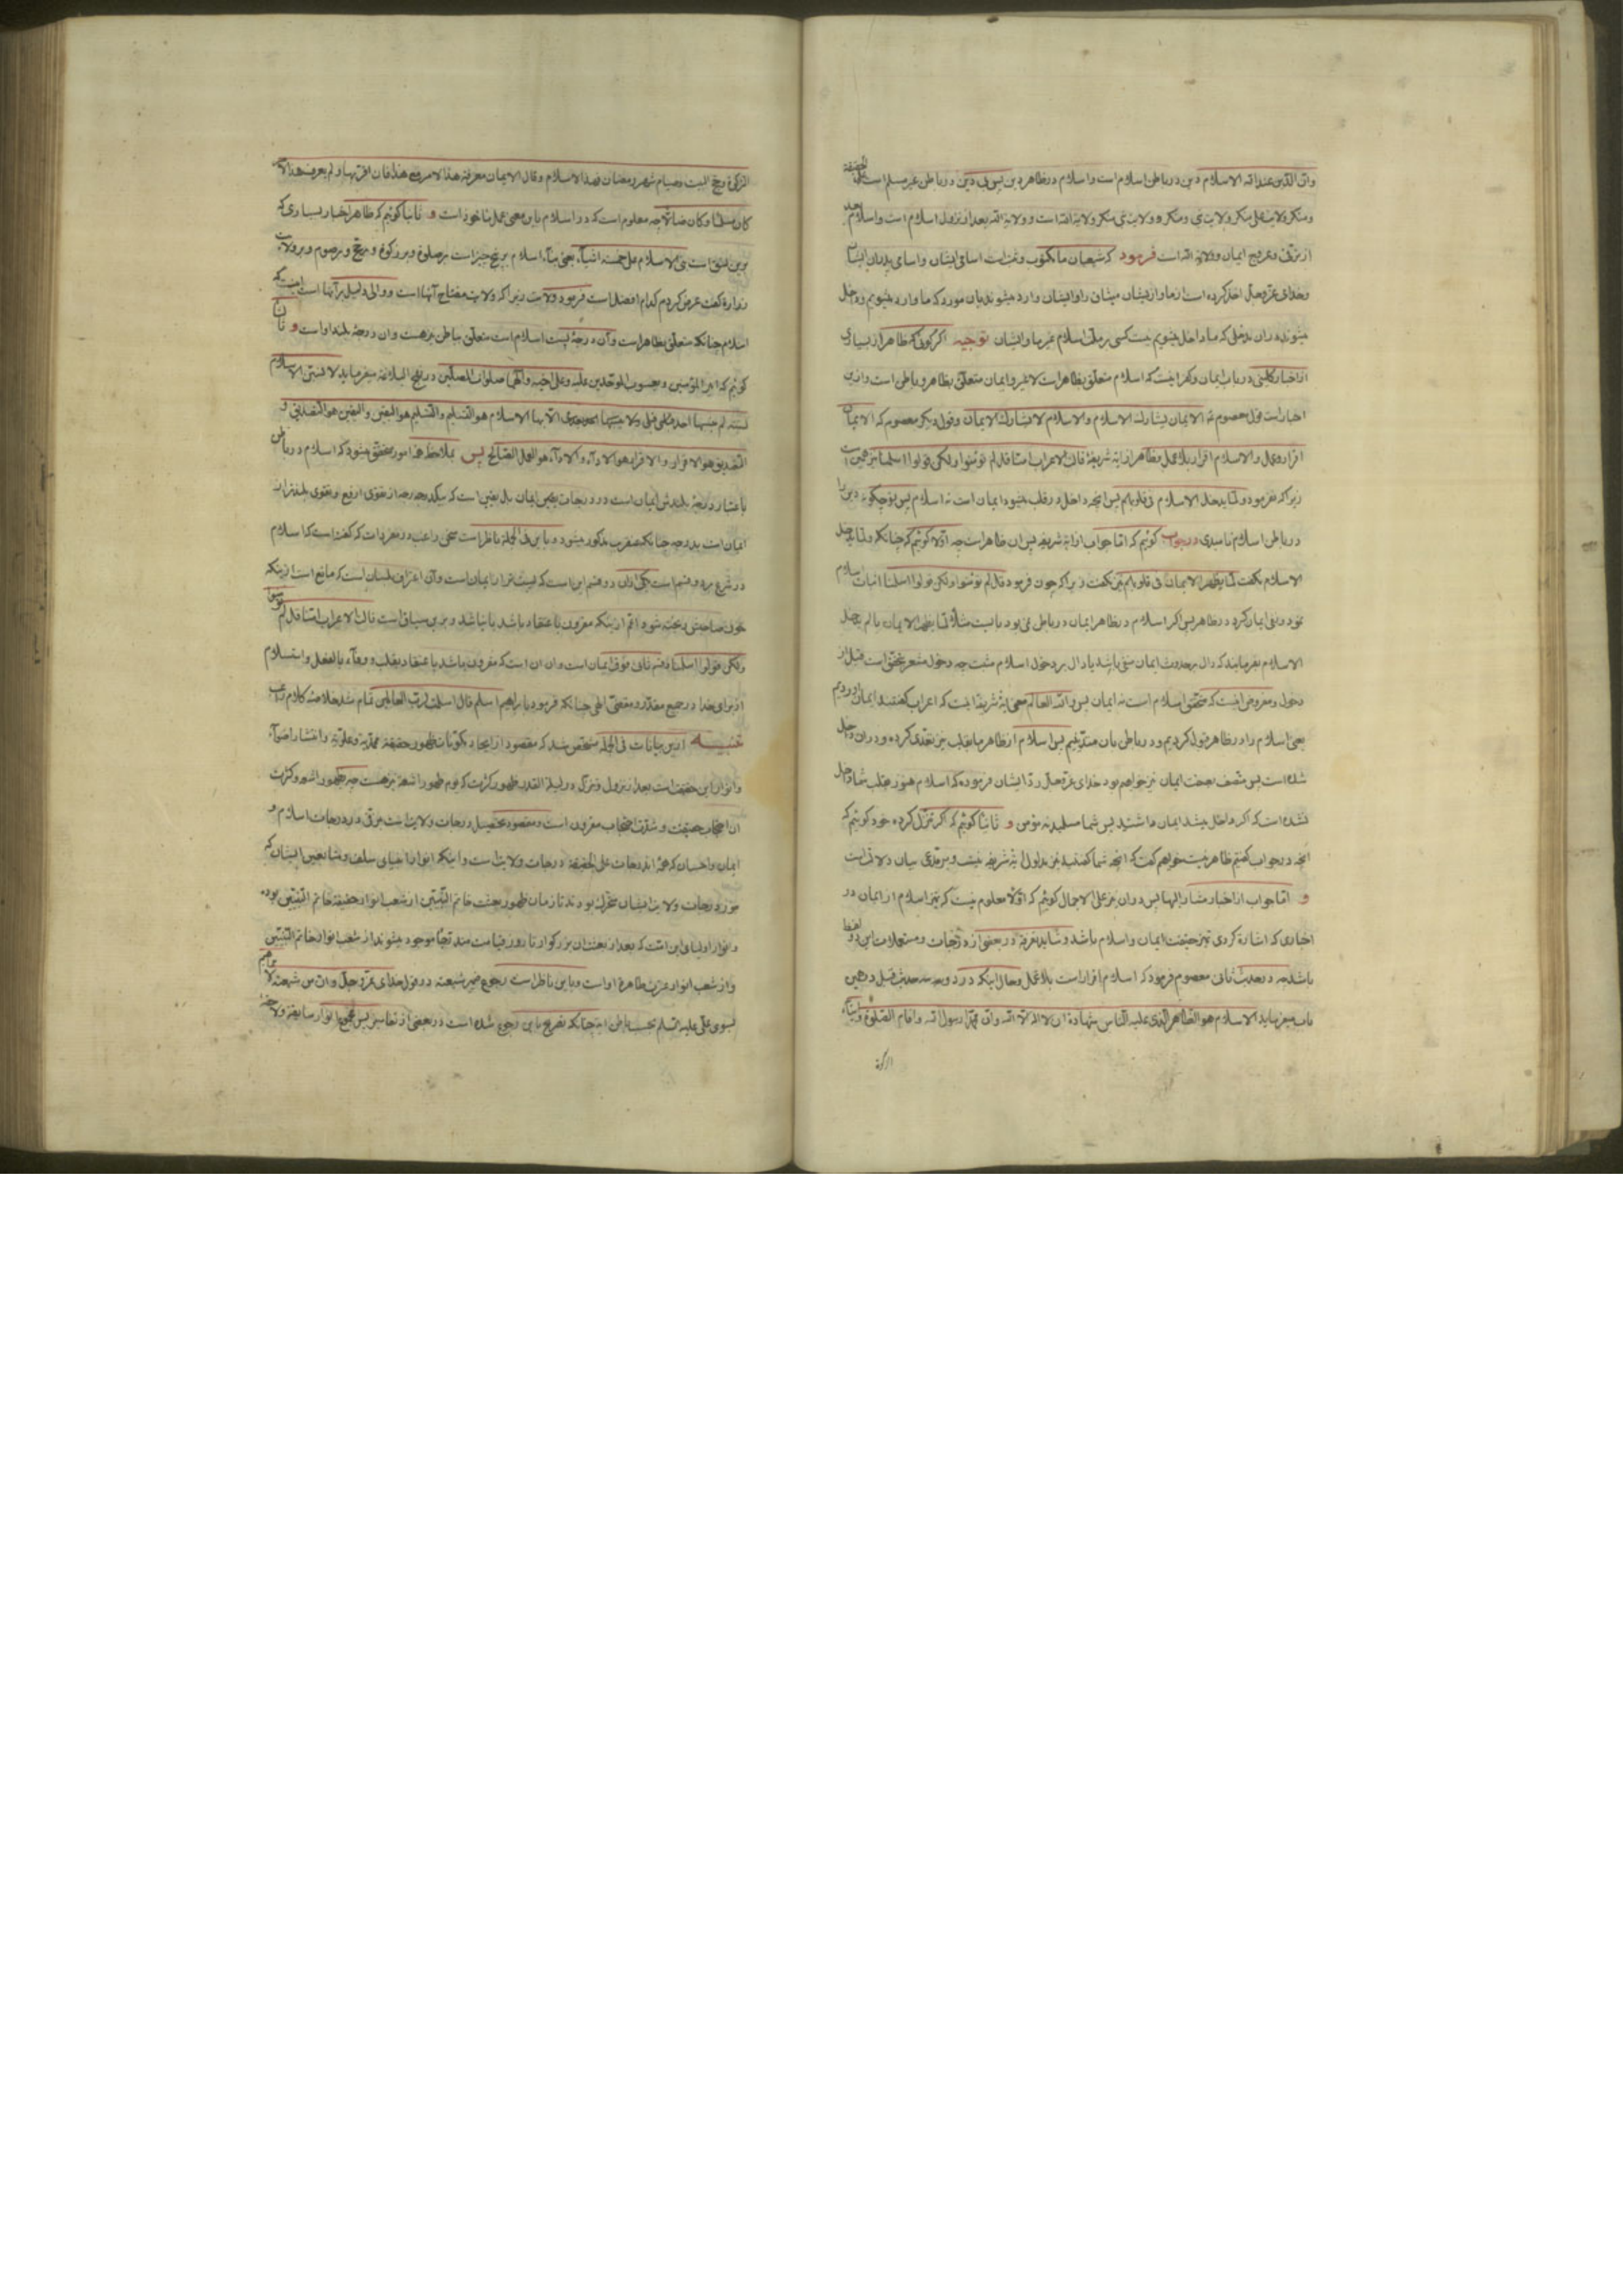 وان الدین عند الله الاسلام دین در باطن اسلام است و اسلام در ظاهر دین پس بی دین در باطن غیر مسلم است علی الحقیقة
و منکر ولایت علی منکر ولایت نبی و منکر ولایت نبی منکر ولایة الله است و ولایة الله بعد از نزول اسلام است و اسلام بعد
از ترقی و عروج ایمان و ولایة الله است فرمود که شیعیان ما مکتوب و ثبت است اسامی ایشان و اسامی پدران ایشان
و خدای عز و جل اخذ کرده است از ما و از ایشان میثاق را و ایشان وارد میشوند بان مورد که ما وارد میشویم و داخل
میشوند در ان مدخلی که ما داخل میشویم نیست کسی بر ملت اسلام غیر ما و ایشان توجیه اگر گوئی که ظاهر از بسیاری
از اخبار کلینی در باب ایمان و کفر اینست که اسلام متعلق بظاهر است لا غیر و ایمان متعلق بظاهر و باطن است و ازین
اخبار است قول معصوم که الایمان یشارک الاسلام والاسلام لا یشارک الایمان و قول دیگر معصوم که الایمان
اقرار و عمل و الاسلام اقرار بلا عمل و ظاهر از ایه شریفه قالت الاعراب امنا قل لم تؤمنوا ولکن قولوا اسلمنا نیز همین است
زیرا که نفرمود و لما یدخل الاسلام فی قلوبکم پس انچه داخل در قلب میشود ایمان است نه اسلام پس تو چگونه دین را
در باطن اسلام نامیدی در جواب گوئیم که اما جواب از ایه شریفه پس ان ظاهر است چه اولا گوئیم که چنانکه و لما یدخل
الاسلام نگفت لما یظهر الایمان فی قلوبکم نیز نگفت زیرا که چون فرمود قل لم تؤمنوا ولکن قولوا اسلمنا اثبات اسلام
نمود و نفی ایمان کرد در ظاهر پس اگر اسلام در ظاهر ایمان در باطن نمی بود بایست مثلا لما یظهر الایمان یا لم یدخل
الاسلام بفرمایند که دال بر حدوث ایمان منفی باشد یا دال بر دخول اسلام مثبت چه دخول مشعر بتحقق است قبل از
دخول و مفروض اینست که متحقق اسلام است نه ایمان پس والله العالم معنی ایه شریفه اینست که اعراب گفتند ایمان اوردیم
یعنی اسلام را در ظاهر قبول کردیم و در باطن بان متدینیم پس اسلام از ظاهر ما بقلب نیز تعدی کرده و در ان داخل
شده است پس متصف بصفت ایمان نیز خواهیم بود خدای عز و جل رد ایشان فرموده که اسلام هنوز بقلب شما داخل
نشده است که اگر داخل میشد ایمان داشتید پس شما مسلمید نه مؤمن و ثانیا گوئیم که اگر تنزل کرده خود گوئیم که
انچه در جواب گفتیم ظاهر نیست خواهیم گفت که انچه شما گفتید نیز مدلول ایه شریفه نیست و بر مدعی بیان دلالت است
و اما جواب از اخبار مشار الیها پس در ان نیز علی الاجمال گوئیم که اولا معلوم نیست که تمیز اسلام از ایمان در
اخباری که اشاره کردی تمیز حقیقت ایمان و اسلام باشد و شاید تفرقه در بعضی از درجات و مستعملات این دو لفظ
باشد چه در حدیث ثانی معصوم فرمود که اسلام اقرار است بلا عمل و حال اینکه در دو سه حدیث قبل در همین
باب میفرماید الاسلام هو الظاهر الذی علیه الناس شهادة ان لا اله الا الله وان محمدا رسول الله واقام الصلوة وایتاء
الزکوة
الزکوة وحج البیت وصیام شهر رمضان فهذا الاسلام وقال الایمان معرفة هذا الامر مع هذا فان اقر بها ولم یعرف هذا الامر
کان مسلما وکان ضالا چه معلوم است که در اسلام باین معنی عمل ماخوذ است و ثانیا گوئیم که ظاهر اخبار بسیاری که
برین نسق است بنی الاسلام علی خمسة اشیاء یعنی بناء اسلام بر پنج چیز است بر صلوة و بر زکوة و بر حج و بر صوم و بر ولایت
زراره گفت عرض کردم کدام افضل است فرمود ولایت زیرا که ولایت مفتاح آنها است و والی دلیل بر آنها است اینست که
اسلام چنانکه متعلق بظاهر است و آن درجهٔ پست اسلام است متعلق بباطن نیز هست و ان درجهٔ بلند اوست و ثالثا
گوئیم که امیر المؤمنین و یعسوب الموحدین علیه وعلی اخیه وآلهما صلوات المصلین در نهج البلاغه میفرماید لا نسبن الاسلام
نسبة لم ینسبها احد قبلی ولا ینسبها احد بعدی الاسلام هو التسلیم والتسلیم هو الیقین والیقین هو التصدیق و
التصدیق هو الاقرار والاقرار هو الاداء والاداء هو العمل الصالح پس بملاحظه هذا امور متحقق میشود که اسلام در باطن
باعتبار درجهٔ بلندش ایمان است و در درجات یقین ایمان بل یقینی است که بیکدرجه از تقوی ارفع و تقوی بلندتر از
ایمان است بدرجه چنانکه عنقریب مذکور میشود و باین فی الجمله ناظر است سخن راغب در مفردات که گفته است که اسلام
در شرع بر دو قسم است یکی از ان دو قسم این است که پست تر از ایمان است و آن اعتراف بلسان است که مانع است از اینکه
خون صاحبش ریخته شود اعم از اینکه مقرون باعتقاد باشد یا نباشد و برین سیاق است قالت الاعراب امنا قل لم تؤمنوا
ولکن قولوا اسلمنا قسم ثانی فوق ایمان است و ان ان است که مقرون باشد با عتقاد بقلب و وفاء بالفعل و استسلام
از برای خدا در جمیع مقدر و مقضی الهی چنانکه فرمود بابراهیم اسلم قال اسلمت لرب العالمین تمام شد خلاصهٔ کلام راغب
تنبیــــه ازین بیانات فی الجمله مشخص شد که مقصود از ایجاد مکونات ظهور حقیقة محمدیه و علویه و انتشار اضواء
و انوار این حقیقت است بعد از نزول و تنزل در لیلة القدر ظهور کثرت که یوم ظهور اشعه نیز هست چه ظهور اشعه و کثرت
ان احتجاب حقیقت و شدت احتجاب مقرون است و مقصود تحصیل درجات ولایت است بترقی در درجات اسلام و
ایمان و احسان که همهٔ این درجات علی الحقیقة درجات ولایت است و اینکه انوار انبیای سلف و متابعین ایشان که
بر درجات ولایت ایشان متحرک بودند تا زمان ظهور بعثت خاتم النبیین از شعب انوار حقیقة خاتم النبیین بوده
و انوار اولیای این امت که بعد از بعثت ان بزرگوار تا روز قیامت متدرجا موجود میشوند از شعب انوار خاتم النبیین
و از شعب انوار عترت طاهرهٔ او است و باین ناظر است رجوع ضمیر شیعته در قول خدای عز و جل وان من شیعته لابراهیم
بسوی علی علیه السلم بحسب باطن ایه چنانکه تصریح باین رجوع شده است در بعضی از تفاسیر پس جمیع انوار سابقه و لاحقه